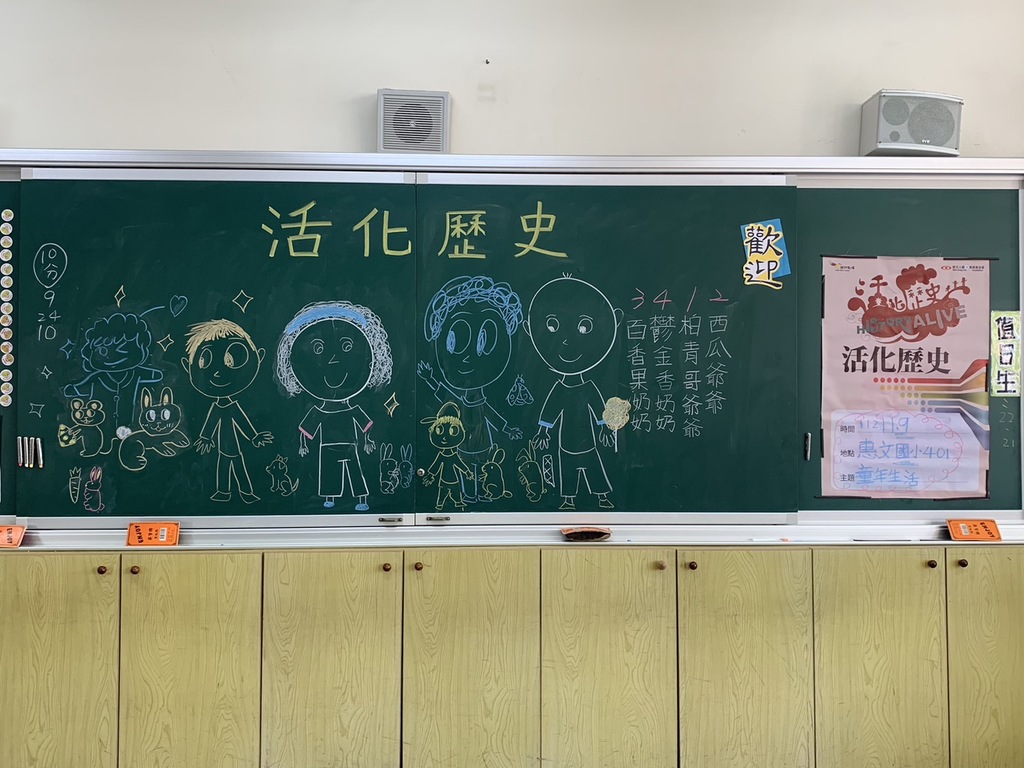 活化歷史
歡迎
10分
9
24
10
2西瓜爺爺
1柏青哥爺爺
4鬱金香奶奶
3百香果奶奶
活化歷史
HISTORY ALIVE
活化歷史
時間 112.11.9
地點 惠文國小401
主題 童年生活
值日生
22
21